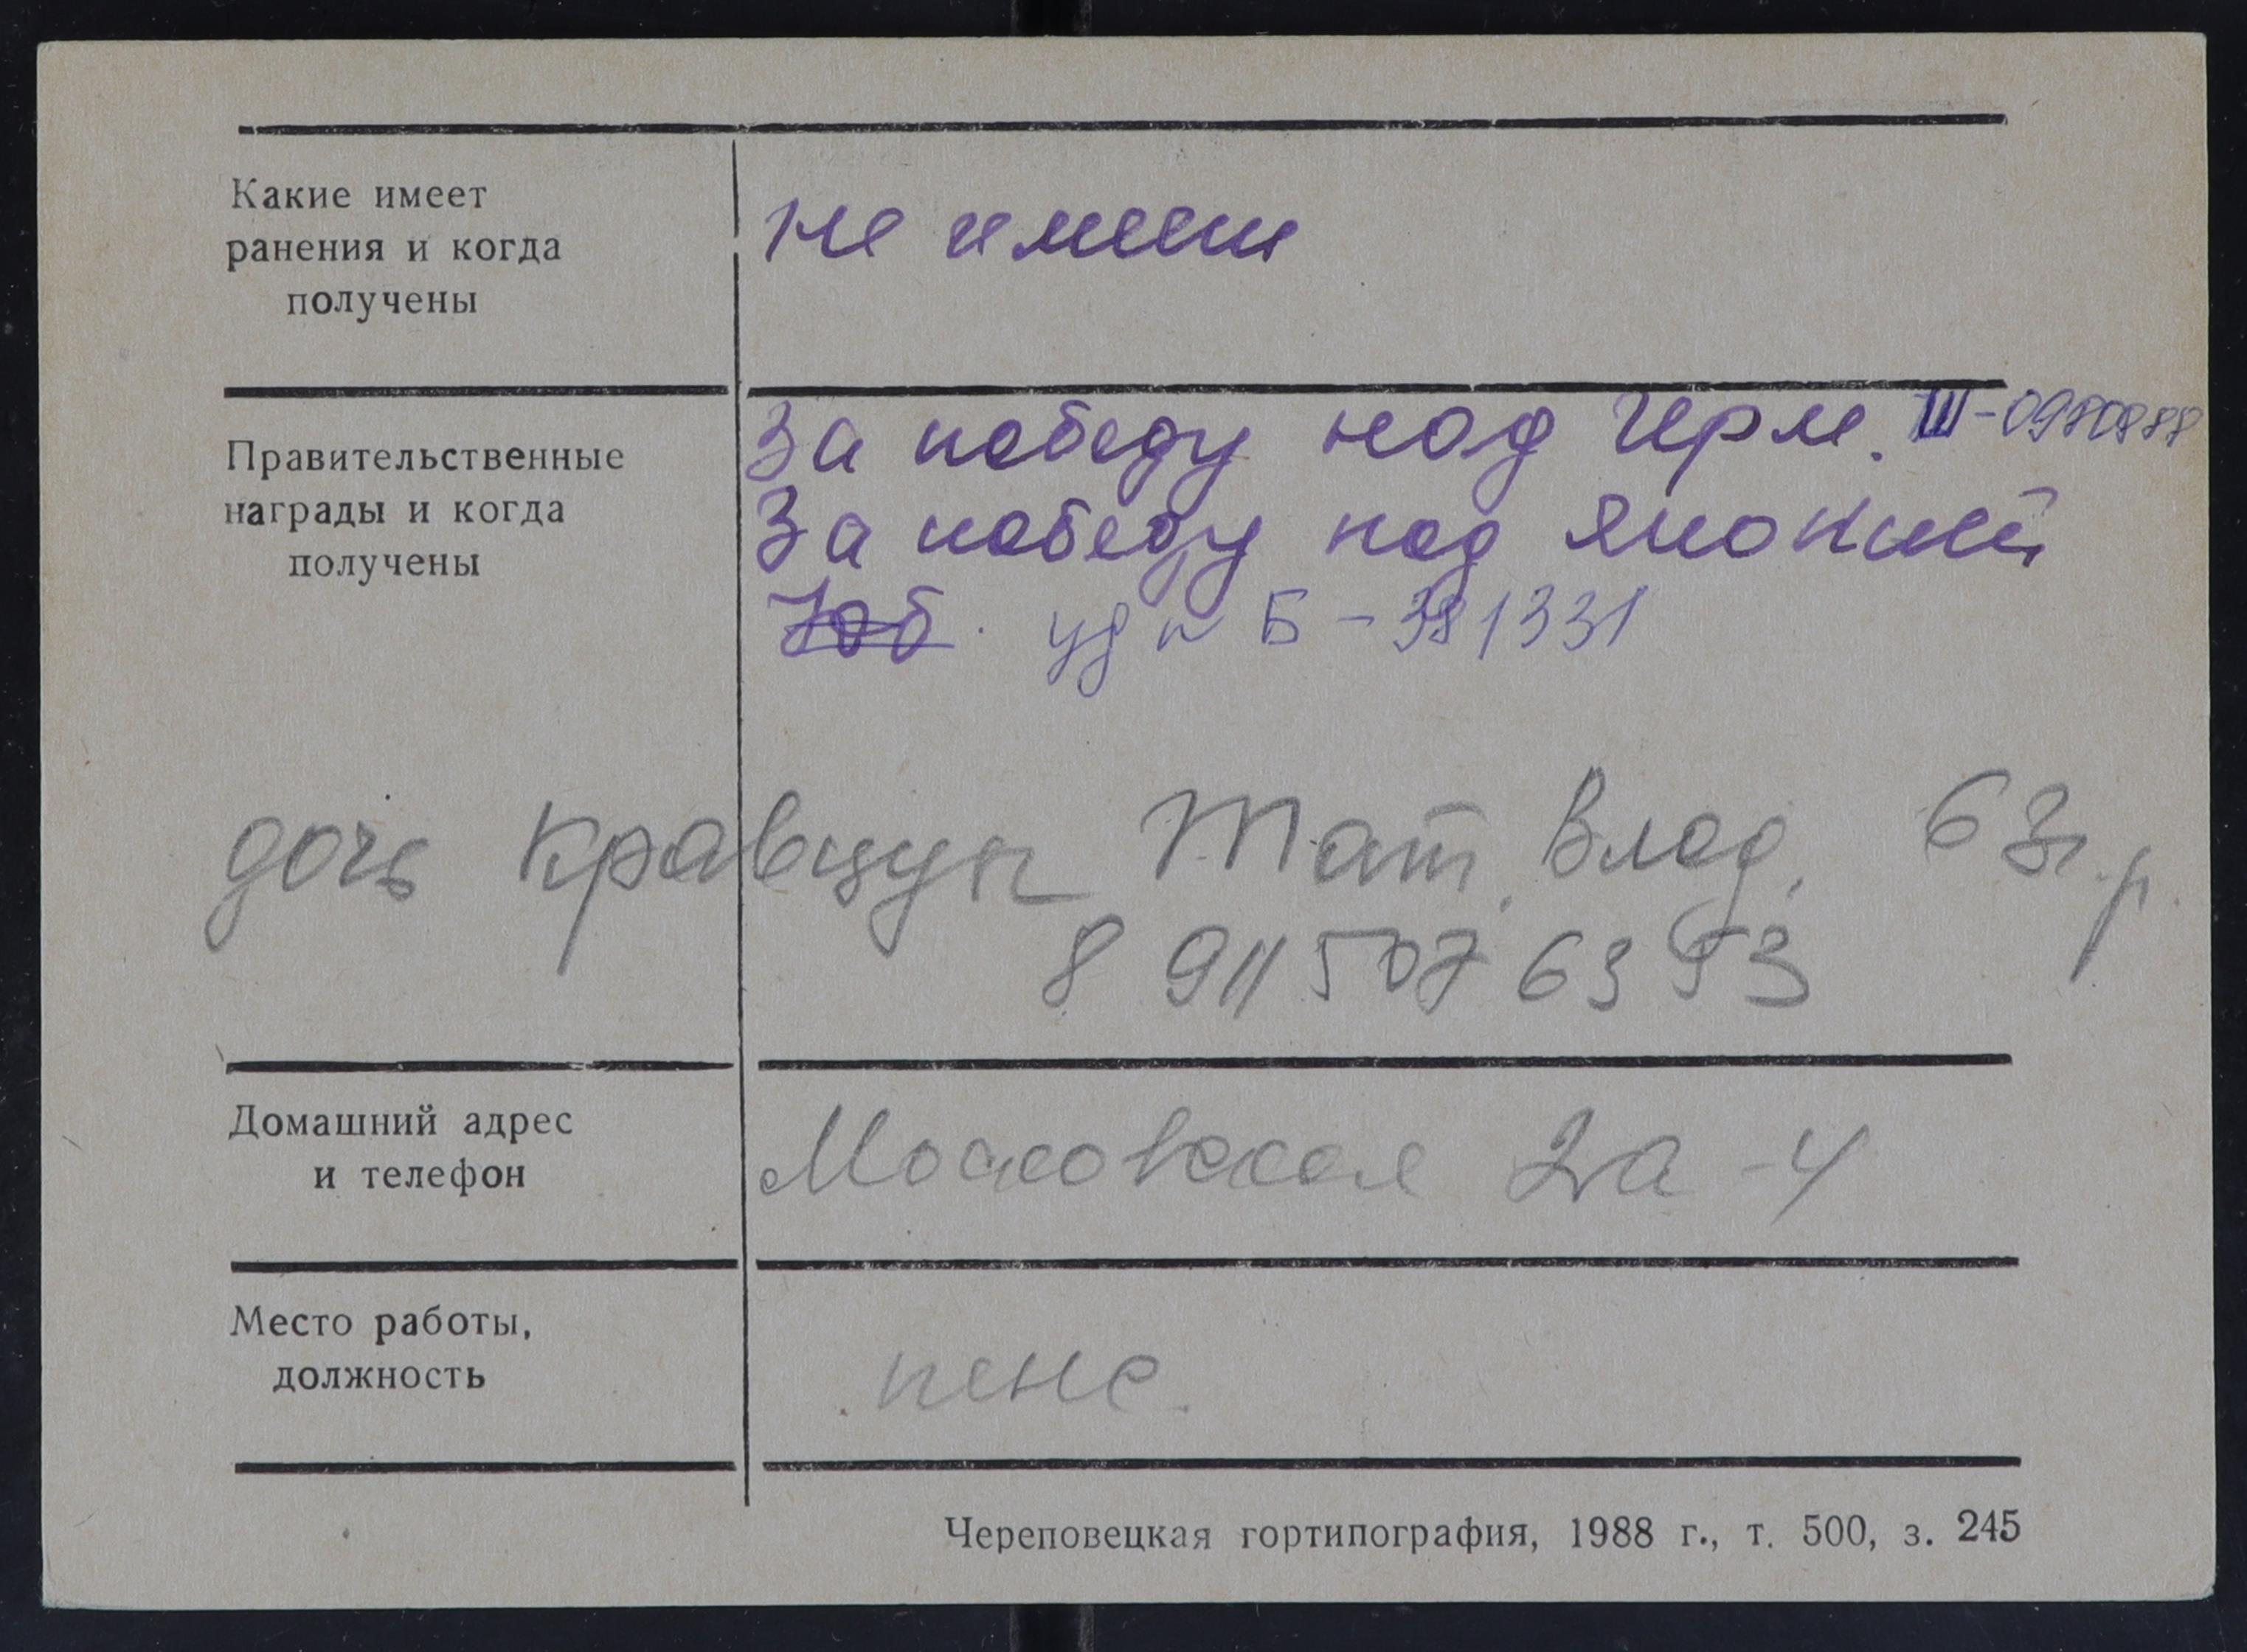 Какие имеет
ранения и когда
получены
не имеет
Правительственные
награды и когда
получены
За победу над Герм. III-0980888
За победу над Японией
Юб. уд № Б-381331
дочь Кравцун Тат. Влад. 63г.р.
8 911 507 63 93
Домашний адрес
и телефон
Московская 2а-4
Место работы,
должность
пенс.
Череповецкая гортипография, 1988 г., т. 500, з. 245